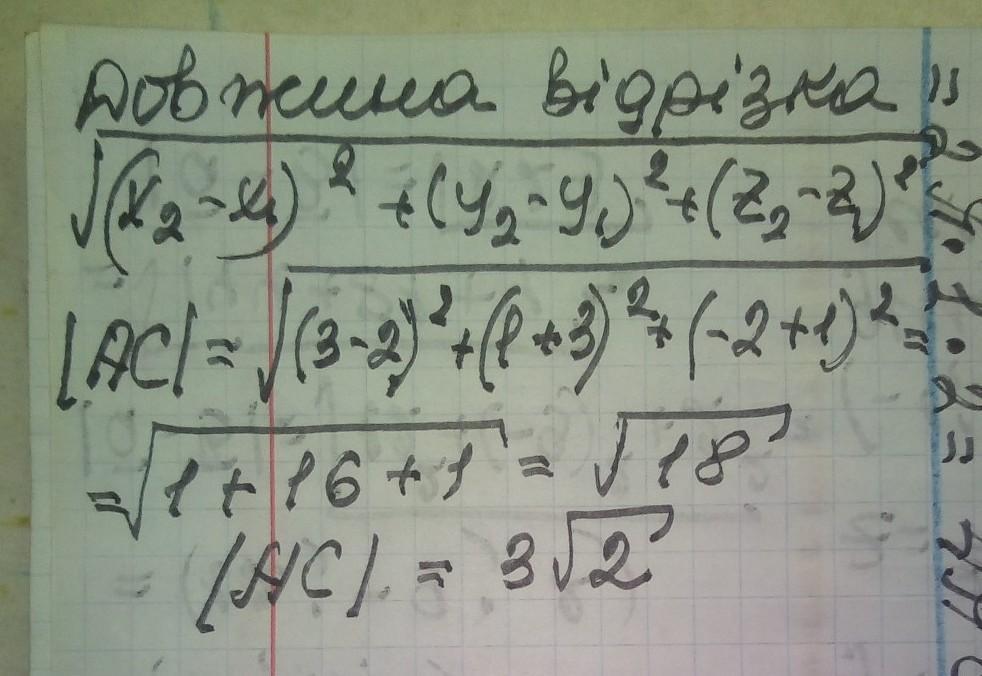 Довжина відрізка
√(x₂-x₁)² + (y₂-y₁)² + (z₂-z₁)²
|AC| = √(3-2)² + (1+3)² + (-2+1)² =
= √1+16+1 = √18
|AC| = 3√2